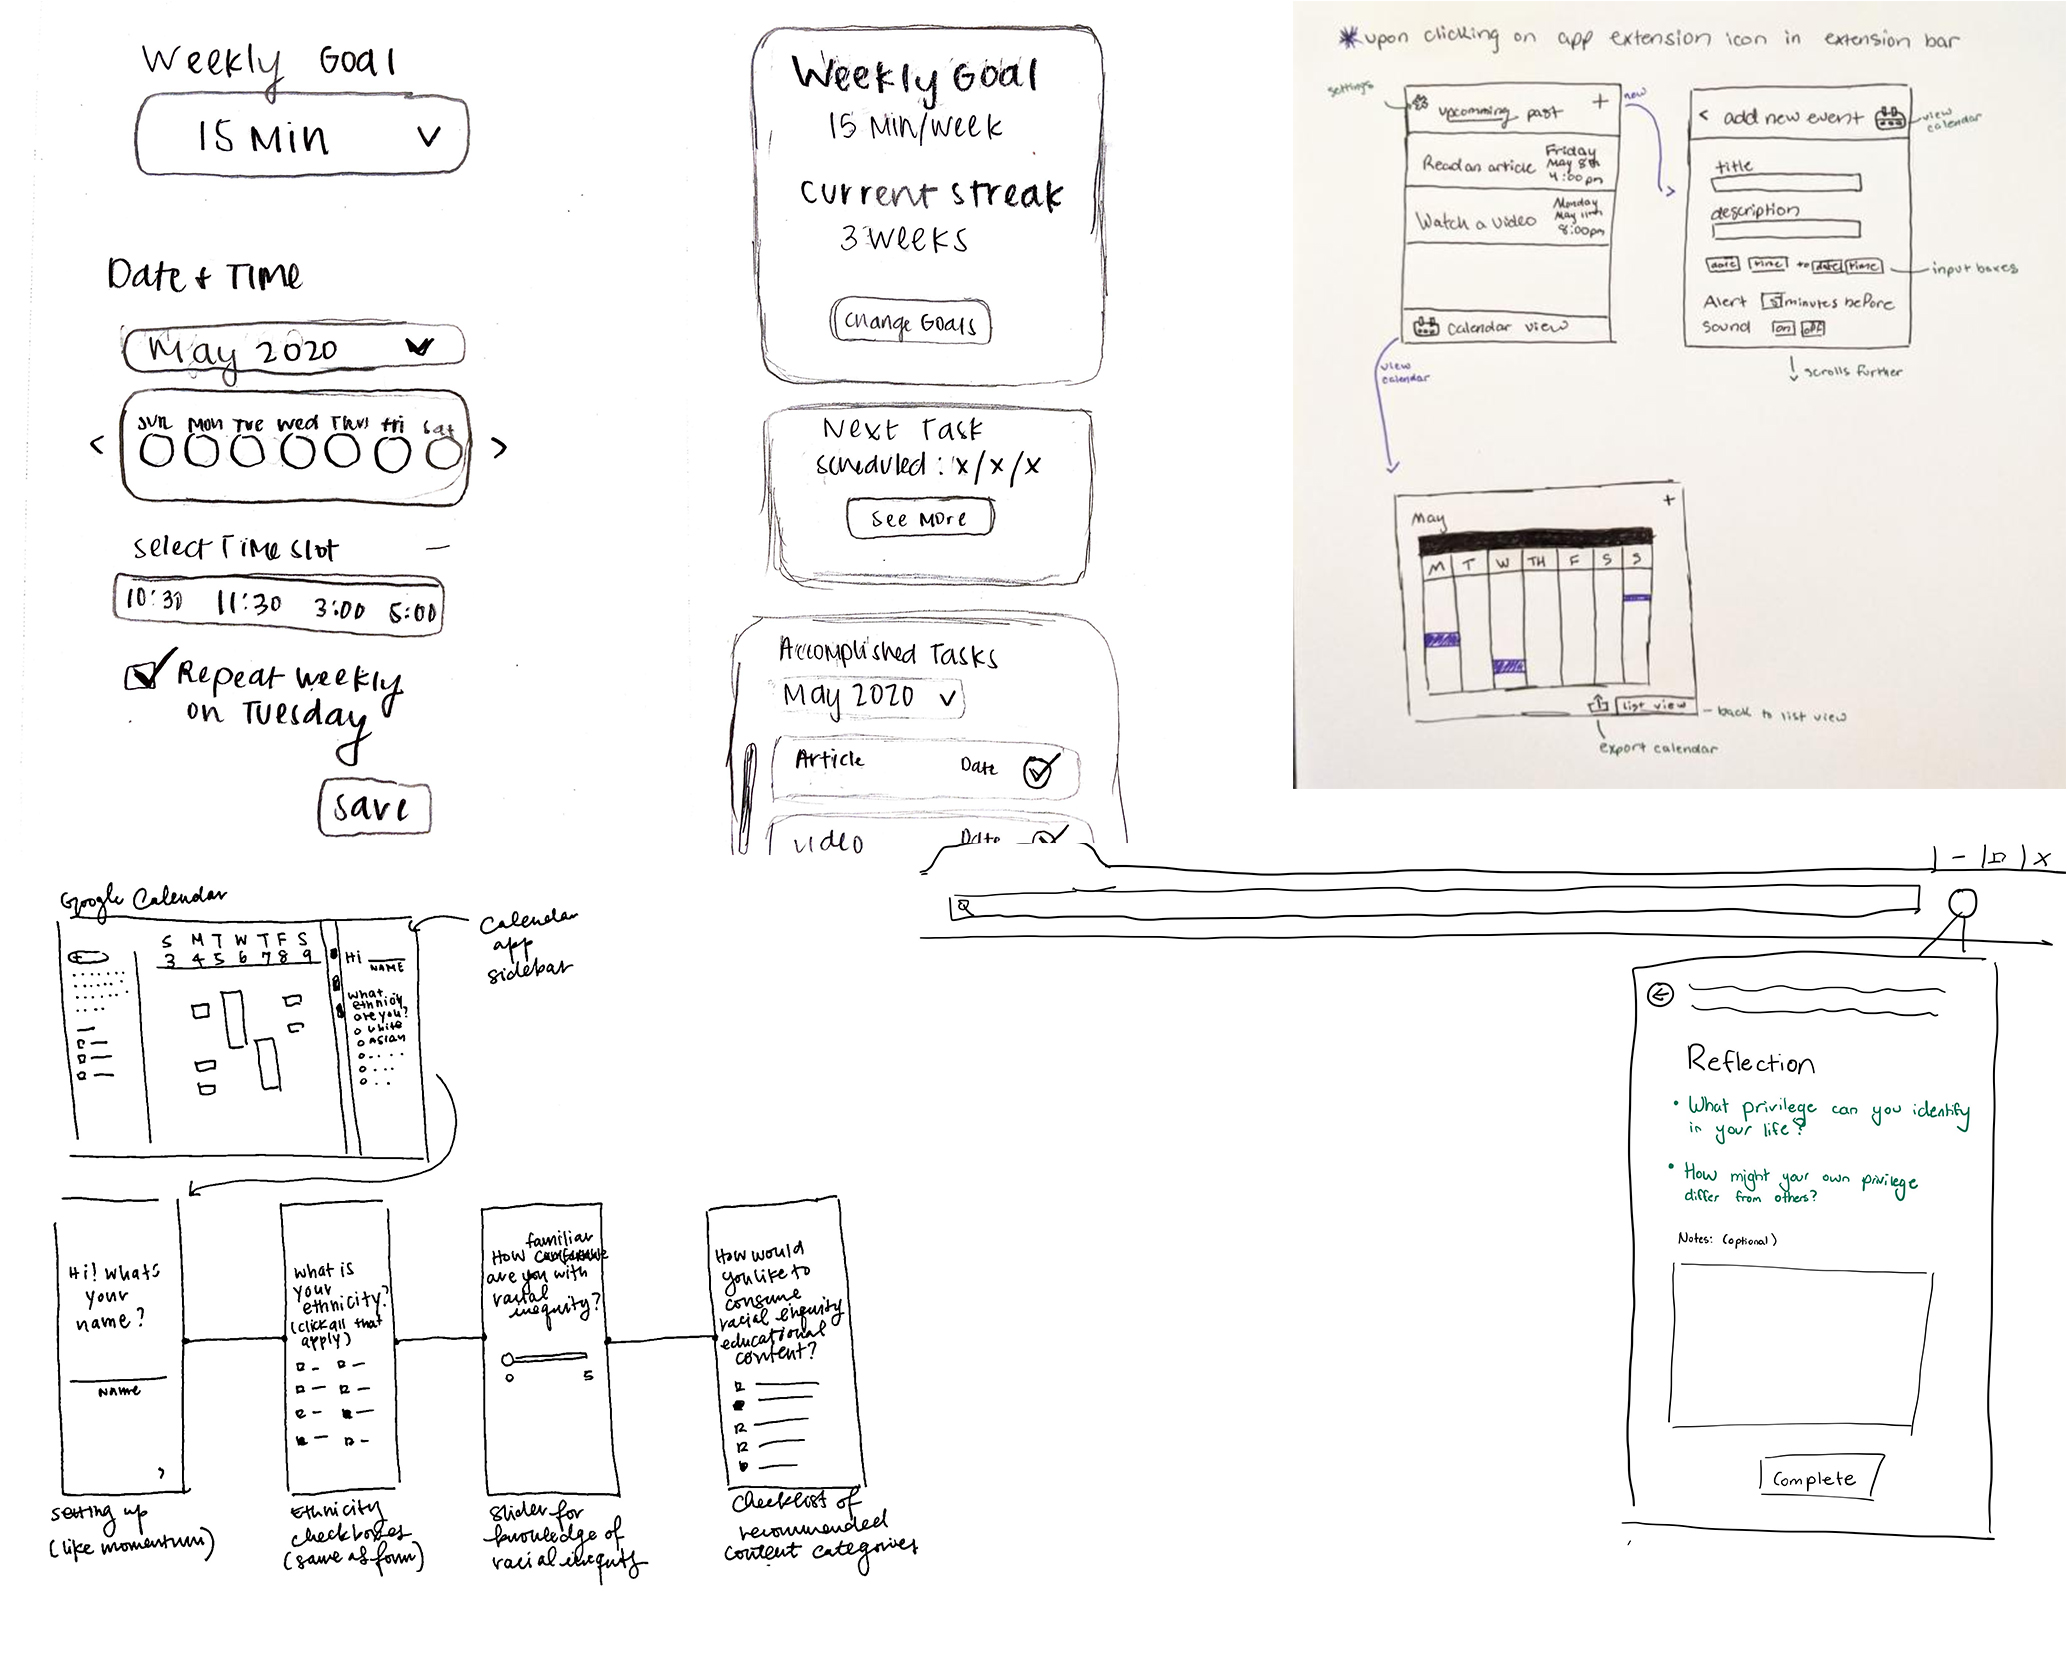 Weekly Goal
15 Min
Date + Time
May 2020
Sun Mon Tue Wed Thus Fri Sat
< >
Select Time Slot —
10:30 11:30 3:00 5:00
Repeat weekly
on Tuesday
save
Weekly Goal
15 Min/week
Current Streak
3 weeks
Change Goals
Next Task
scheduled: x/x/x
See More
Accomplished Tasks
May 2020
Article Date
Video Date
*upon clicking on app extension icon in extension bar
settings
upcomming past +
new
Read an article Friday
May 8th
4:00pm
Watch a video Monday
May 11th
8:00pm
calendar view
view
calendar
< add new event
view
calendar
title
description
date time to date time
input boxes
Alert 5 minutes before
Sound on off
scrolls further
May +
M T W TH F S S
list view
back to list view
export calendar
Google Calendar
S M T W T F S
3 4 5 6 7 8 9
Hi
NAME
What
ethnicity
are you?
white
ASIAN
Calendar
app
sidebar
Hi! Whats
your
name?
NAME
setting up
(like momentum)
What is
your
ethnicity?
(click all that
apply)
Ethnicity
checkboxes
(same as form)
familiar
How
are you with
racial
inequity?
0 5
Slider for
knowledge of
racial inequity
How would
you like to
consume
racial inequity
educational
content?
checklist of
recommended
content categories
| - | | x
Reflection
• What privilege can you identify
in your life?
• How might your own privilege
differ from others?
Notes: (optional)
Complete